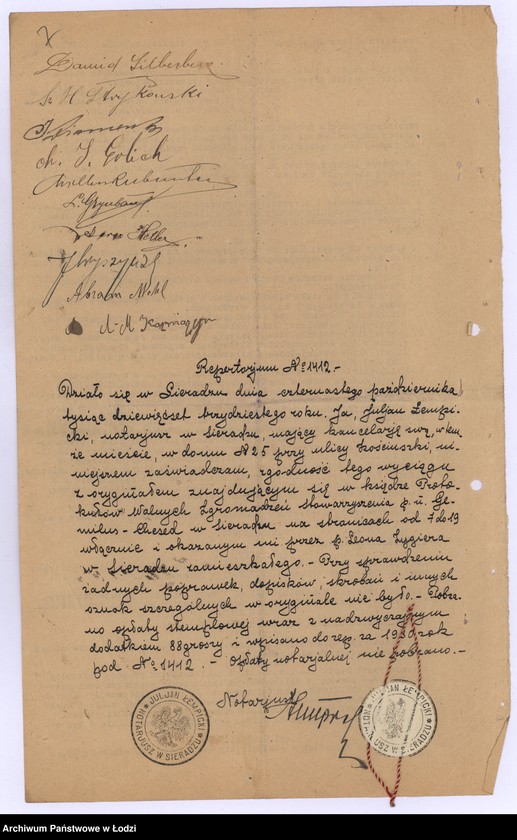 X
Dawid Silberberg
Sz H Strykowski
ch. J. Golich
L. Grynbaum
Heller
Abram
A-M Kaźmierzyn
Repertorjum № 1412.-
Działo się w Sieradzu dnia czternastego października
tysiąc dziewięćset trzydziestego roku. Ja, Juljan Łempi-
cki, notarjusz w Sieradzu, mający kancelarję swą, w tem
że mieście, w domu № 25 przy ulicy Kościuszki, ni-
niejszem zaświadczam, zgodność tego wyciągu
z oryginałem znajdującym się w księdze Proto-
kułów Walnych Zgromadzeń Stowarzyszenia p. n. Ge-
milus-Chesed w Sieradzu na stronicach od 7 do 19
włącznie i okazanym mi przez p. Leona Zygiera
w Sieradzu zamieszkałego.- Przy sprawdzeniu
żadnych poprawek, dopisków, skrobań i innych
oznak szczególnych w oryginale nie było.- Pobra-
no opłaty stemplowej wraz z nadzwyczajnym
dodatkiem 88 groszy i wpisano do rep. za 1930 rok
pod № 1412.- Opłaty notarjalnej nie pobrano.-
Notarjusz
JULJAN ŁEMPICKI
NOTARJUSZ W SIERADZU
JULJAN ŁEMPICKI
NOTARJUSZ W SIERADZU
Archiwum Państwowe w Łodzi